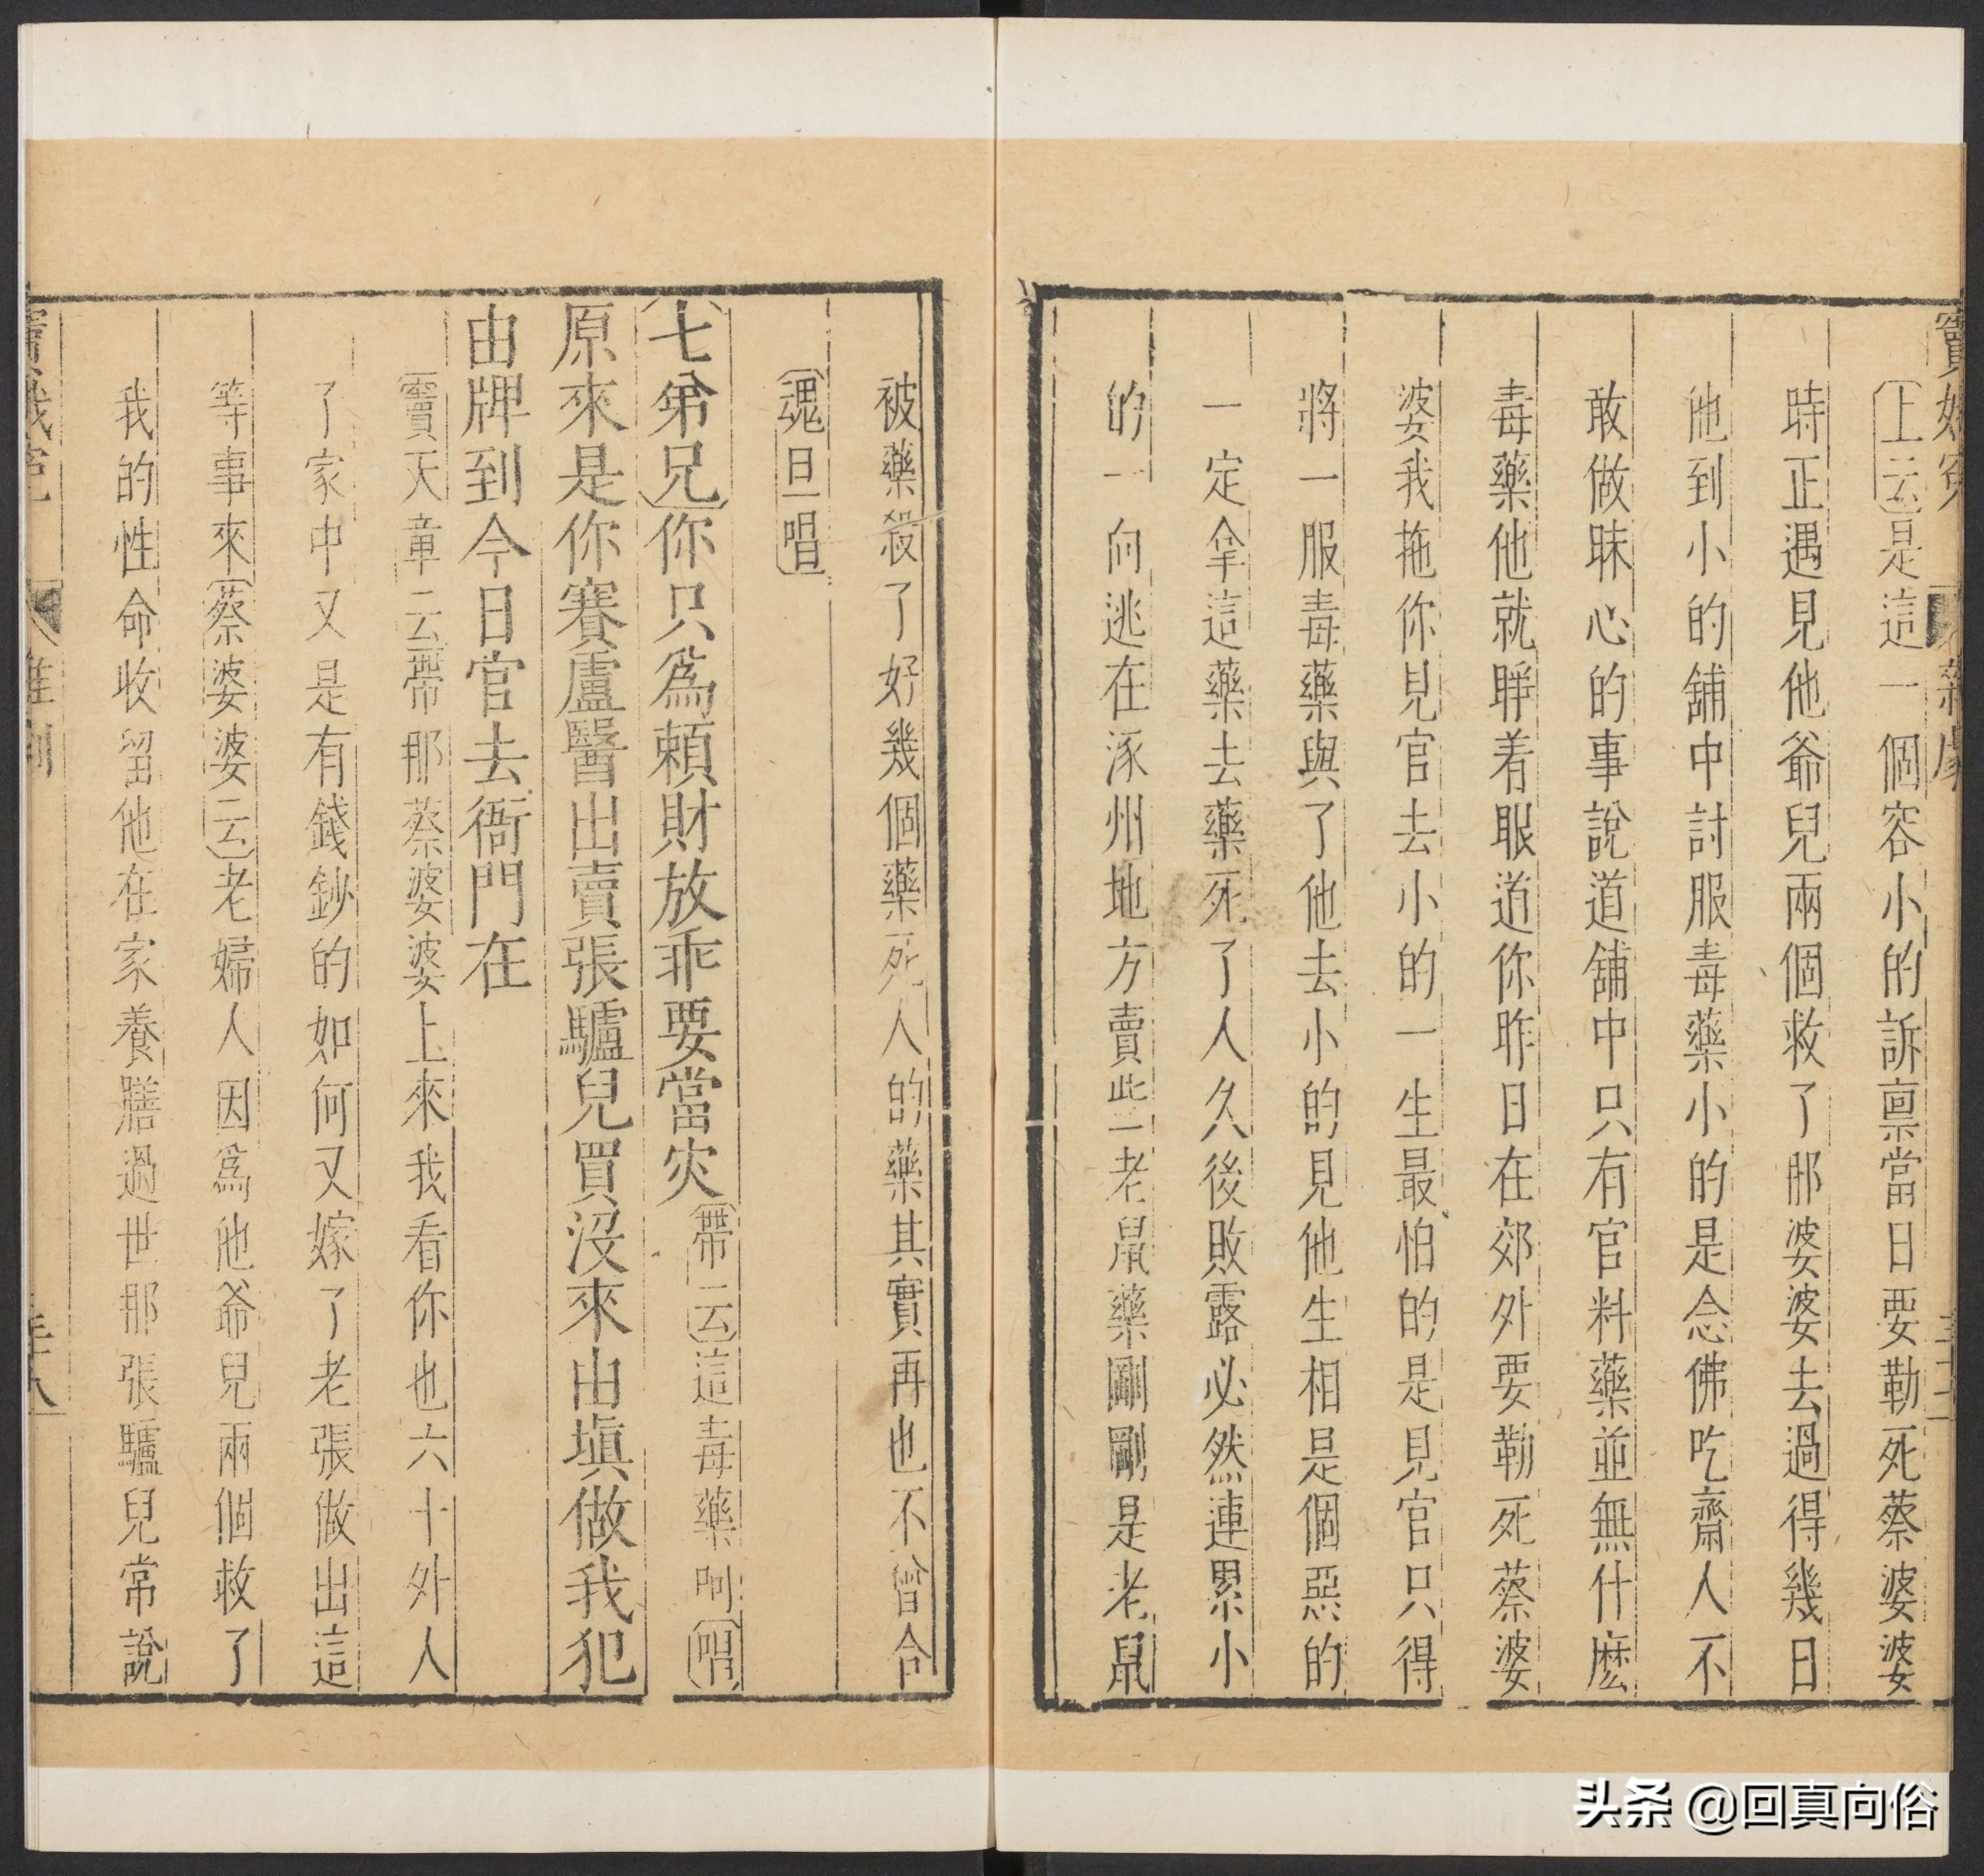 上云是這一個容小的訴禀當日要勒死蔡婆婆
時正遇見他爺兒兩個救了那婆婆去過得幾日
他到小的舖中討服毒藥小的是念佛吃齋人不
敢做昧心的事說道舖中只有官料藥並無什麽
毒藥他就睜着眼道你昨日在郊外要勒死蔡婆
婆我拖你見官去小的一生最怕的是見官只得
將一服毒藥與了他去小的見他生相是個惡的
一定拿這藥去藥死了人久後敗露必然連累小
的一向逃在涿州地方賣些老鼠藥剛剛是老鼠
被藥殺了好幾個藥死人的藥其實再也不曾合
魂旦唱
七弟兄你只爲賴財放乖要當灾帶云這毒藥呵唱
原來是你賽盧醫出賣張驢兒買沒來由塡做我犯
由牌到今日官去衙門在
竇天章云帶那蔡婆婆上來我看你也六十外人
了家中又是有錢鈔的如何又嫁了老張做出這
等事來蔡婆婆云老婦人因爲他爺兒兩個救了
我的性命收留他在家養膳過世那張驢兒常說
头条 @回真向俗